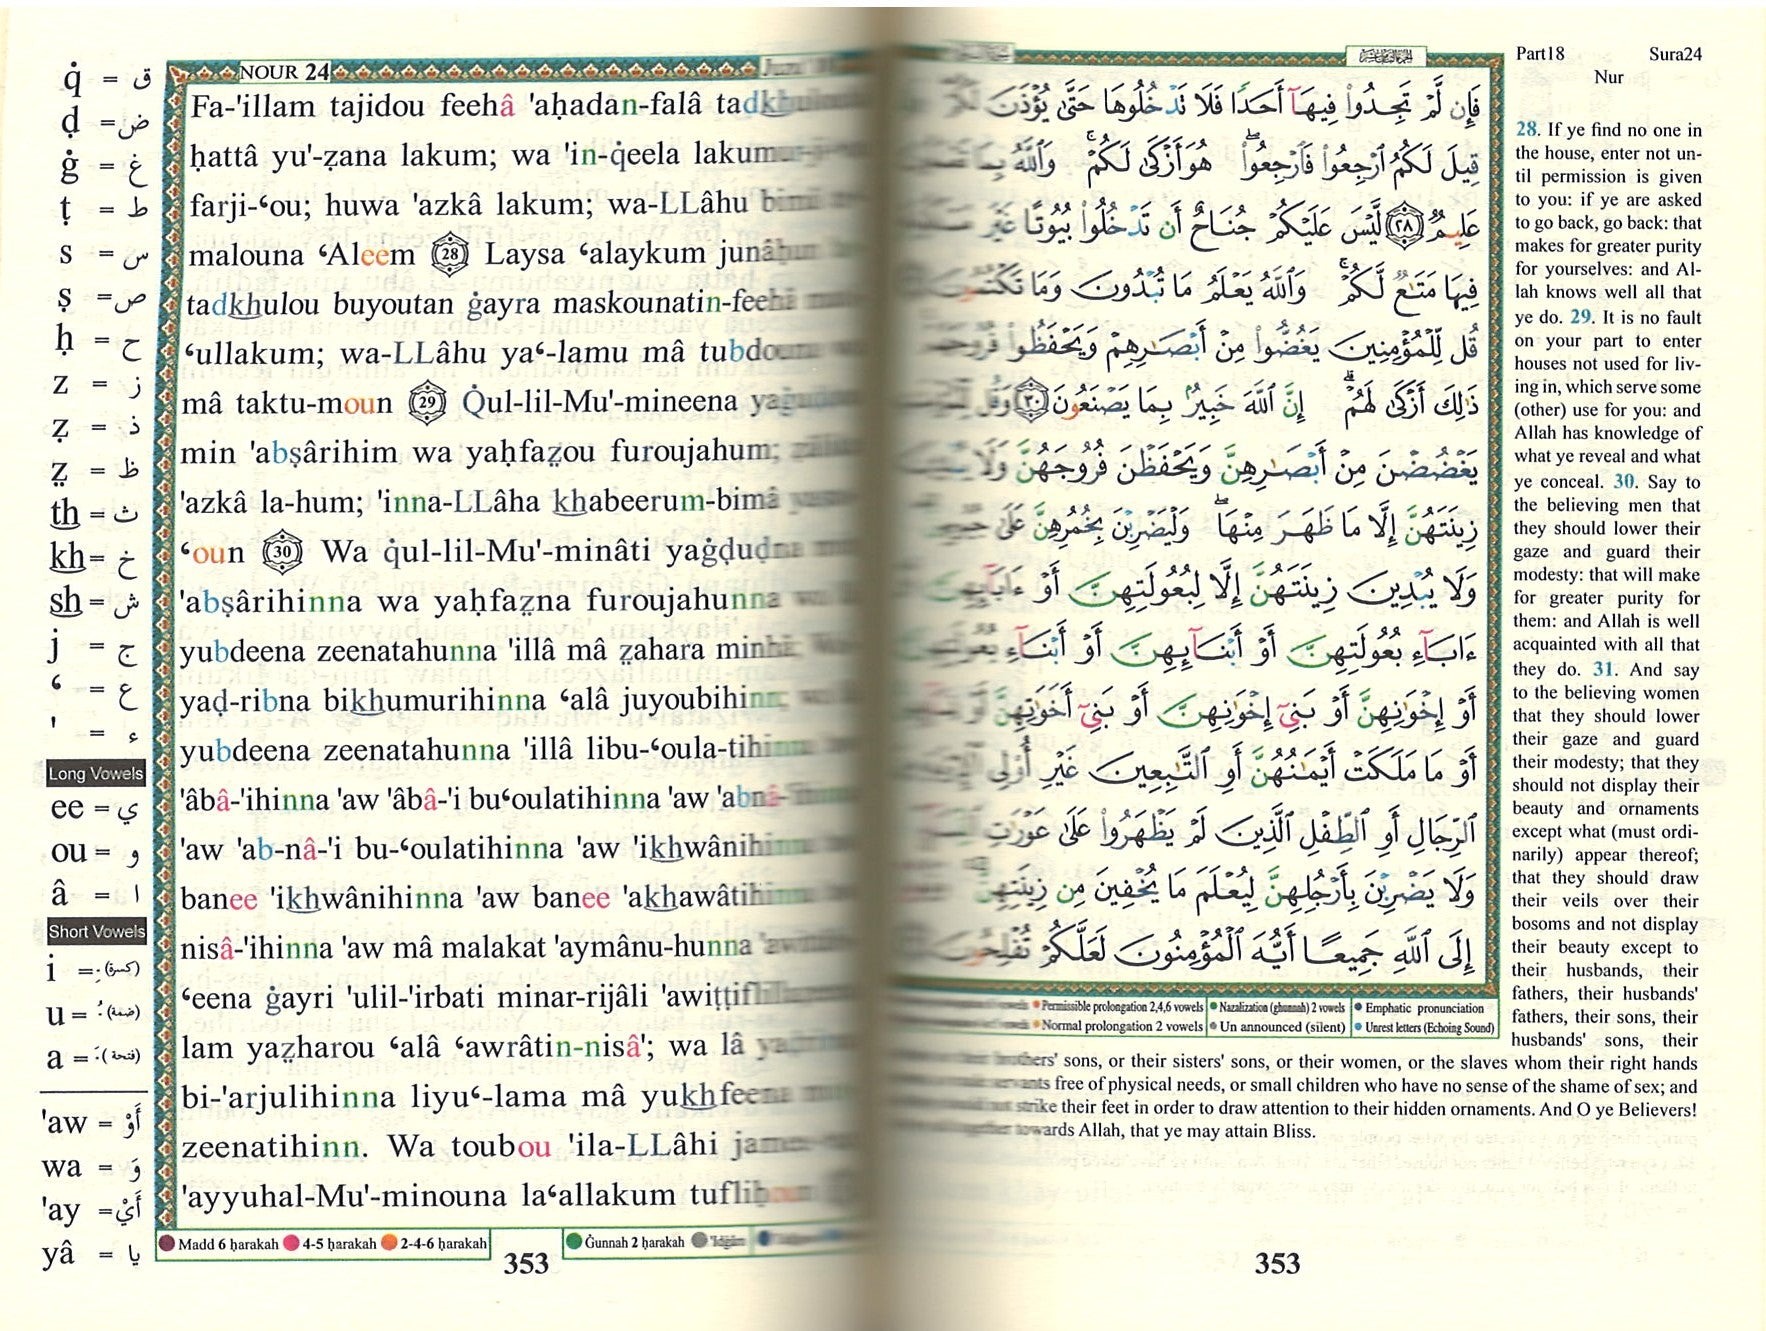 q̇ = ق
ḍ = ض
ġ = غ
ṭ = ط
s = س
ṣ = ص
ḥ = ح
z = ز
ẓ = ذ
z̤ = ظ
th = ث
kh = خ
sh = ش
j = ج
ʻ = ع
' = ء
Long Vowels
ee = ي
ou = و
â = ا
Short Vowels
i = (كسرة)
u = (ضمة)
a = (فتحة)
'aw = أَوْ
wa = وَ
'ay = أَيْ
yâ = يا
NOUR 24
Fa-'illam tajidou feehâ 'aḥadan-falâ
ḥattâ yu'-ẓana lakum; wa 'in-q̇eela lakum
farji-ʻou; huwa 'azkâ lakum; wa-LLâhu
malouna ʻAleem 28 Laysa ʻalaykum
tadkhulou buyoutan ġayra maskounatin-feehâ
ʻullakum; wa-LLâhu yaʻ-lamu mâ
mâ taktu-moun 29 Q̇ul-lil-Mu'-mineena
min 'abṣârihim wa yaḥfaz̤ou furoujahum;
'azkâ la-hum; 'inna-LLâha khabeerum-bimâ
ʻoun 30 Wa q̇ul-lil-Mu'-minâti
'abṣârihinna wa yaḥfaz̤na furoujahunna
yubdeena zeenatahunna 'illâ mâ z̤ahara
yaḍ-ribna bikhumurihinna ʻalâ juyoubihinn;
yubdeena zeenatahunna 'illâ libu-ʻoula-tihinna
'âbâ-'ihinna 'aw 'âbâ-'i buʻoulatihinna 'aw
'aw 'ab-nâ-'i bu-ʻoulatihinna 'aw 'ikhwânihinna
banee 'ikhwânihinna 'aw banee 'akhawâtihinna
nisâ-'ihinna 'aw mâ malakat 'aymânu-hunna
ʻeena ġayri 'ulil-'irbati minar-rijâli
lam yaz̤harou ʻalâ ʻawrâtin-nisâ'; wa lâ
bi-'arjulihinna liyuʻ-lama mâ yukhfeena
zeenatihinn. Wa toubou 'ila-LLâhi
'ayyuhal-Mu'-minouna laʻallakum
Madd 6 ḥarakah 4-5 ḥarakah 2-4-6 ḥarakah Ġunnah 2 ḥarakah
353
فَإِن لَّمْ تَجِدُوا۟ فِيهَآ أَحَدًا فَلَا تَدْخُلُوهَا حَتَّىٰ يُؤْذَنَ
قِيلَ لَكُمُ ٱرْجِعُوا۟ فَٱرْجِعُوا۟ ۖ هُوَ أَزْكَىٰ لَكُمْ ۚ وَٱللَّهُ بِمَا
عَلِيمٌ ٢٨ لَّيْسَ عَلَيْكُمْ جُنَاحٌ أَن تَدْخُلُوا۟ بُيُوتًا غَيْرَ
فِيهَا مَتَٰعٌ لَّكُمْ ۚ وَٱللَّهُ يَعْلَمُ مَا تُبْدُونَ وَمَا تَكْتُمُونَ
قُل لِّلْمُؤْمِنِينَ يَغُضُّوا۟ مِنْ أَبْصَٰرِهِمْ وَيَحْفَظُوا۟
ذَٰلِكَ أَزْكَىٰ لَهُمْ ۗ إِنَّ ٱللَّهَ خَبِيرٌۢ بِمَا يَصْنَعُونَ ٣٠ وَقُل
يَغْضُضْنَ مِنْ أَبْصَٰرِهِنَّ وَيَحْفَظْنَ فُرُوجَهُنَّ وَلَا
زِينَتَهُنَّ إِلَّا مَا ظَهَرَ مِنْهَا ۖ وَلْيَضْرِبْنَ بِخُمُرِهِنَّ عَلَىٰ
وَلَا يُبْدِينَ زِينَتَهُنَّ إِلَّا لِبُعُولَتِهِنَّ أَوْ
ءَابَآءِ بُعُولَتِهِنَّ أَوْ أَبْنَآئِهِنَّ أَوْ أَبْنَآءِ
أَوْ إِخْوَٰنِهِنَّ أَوْ بَنِىٓ إِخْوَٰنِهِنَّ أَوْ بَنِىٓ أَخَوَٰتِهِنَّ
أَوْ مَا مَلَكَتْ أَيْمَٰنُهُنَّ أَوِ ٱلتَّٰبِعِينَ غَيْرِ أُو۟لِى
ٱلرِّجَالِ أَوِ ٱلطِّفْلِ ٱلَّذِينَ لَمْ يَظْهَرُوا۟ عَلَىٰ عَوْرَٰتِ
وَلَا يَضْرِبْنَ بِأَرْجُلِهِنَّ لِيُعْلَمَ مَا يُخْفِينَ مِن زِينَتِهِنَّ
إِلَى ٱللَّهِ جَمِيعًا أَيُّهَ ٱلْمُؤْمِنُونَ لَعَلَّكُمْ تُفْلِحُونَ
Permissible prolongation 2,4,6 vowels Nazalization (ghunnah) 2 vowels Emphatic pronunciation
Normal prolongation 2 vowels Un announced (silent) Unrest letters (Echoing Sound)
Part18 Sura24
Nur
28. If ye find no one in
the house, enter not un-
til permission is given
to you: if ye are asked
to go back, go back: that
makes for greater purity
for yourselves: and Al-
lah knows well all that
ye do. 29. It is no fault
on your part to enter
houses not used for liv-
ing in, which serve some
(other) use for you: and
Allah has knowledge of
what ye reveal and what
ye conceal. 30. Say to
the believing men that
they should lower their
gaze and guard their
modesty: that will make
for greater purity for
them: and Allah is well
acquainted with all that
they do. 31. And say
to the believing women
that they should lower
their gaze and guard
their modesty; that they
should not display their
beauty and ornaments
except what (must ordi-
narily) appear thereof;
that they should draw
their veils over their
bosoms and not display
their beauty except to
their husbands, their
fathers, their husbands'
fathers, their sons, their
husbands' sons, their
brothers' sons, or their sisters' sons, or their women, or the slaves whom their right hands
free of physical needs, or small children who have no sense of the shame of sex; and
strike their feet in order to draw attention to their hidden ornaments. And O ye Believers!
towards Allah, that ye may attain Bliss.
353